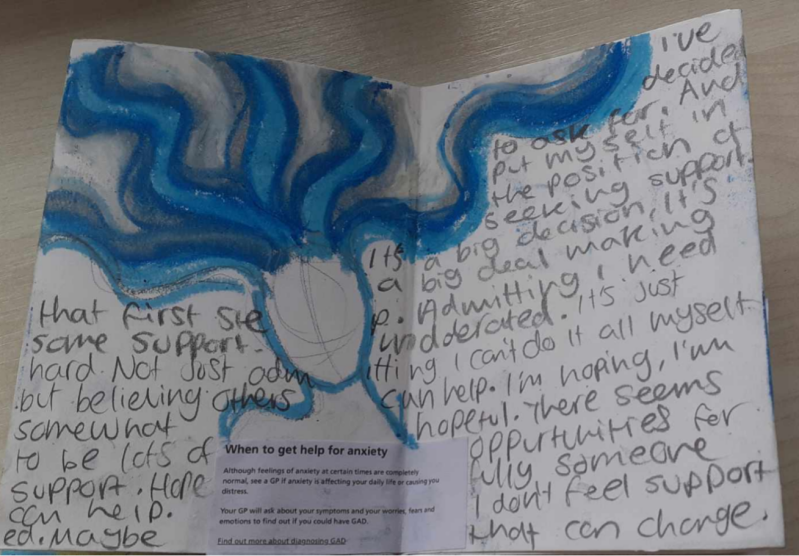 I've
decided
to ask for. And
put myself in
the position of
seeking support.
It's a big decision, It's
a big deal making
that first step. Admitting I need
some support. undderated. It's just
hard. Not just admitting I can't do it all myself
but believing others can help. I'm hoping, I'm
somewhat hopeful. There seems
to be lots of oppurtunities for
support. Hopefully someone
can help. I don't feel support
ed. Maybe that can change.
When to get help for anxiety
Although feelings of anxiety at certain times are completely
normal, see a GP if anxiety is affecting your daily life or causing you
distress.
Your GP will ask about your symptoms and your worries, fears and
emotions to find out if you could have GAD.
Find out more about diagnosing GAD